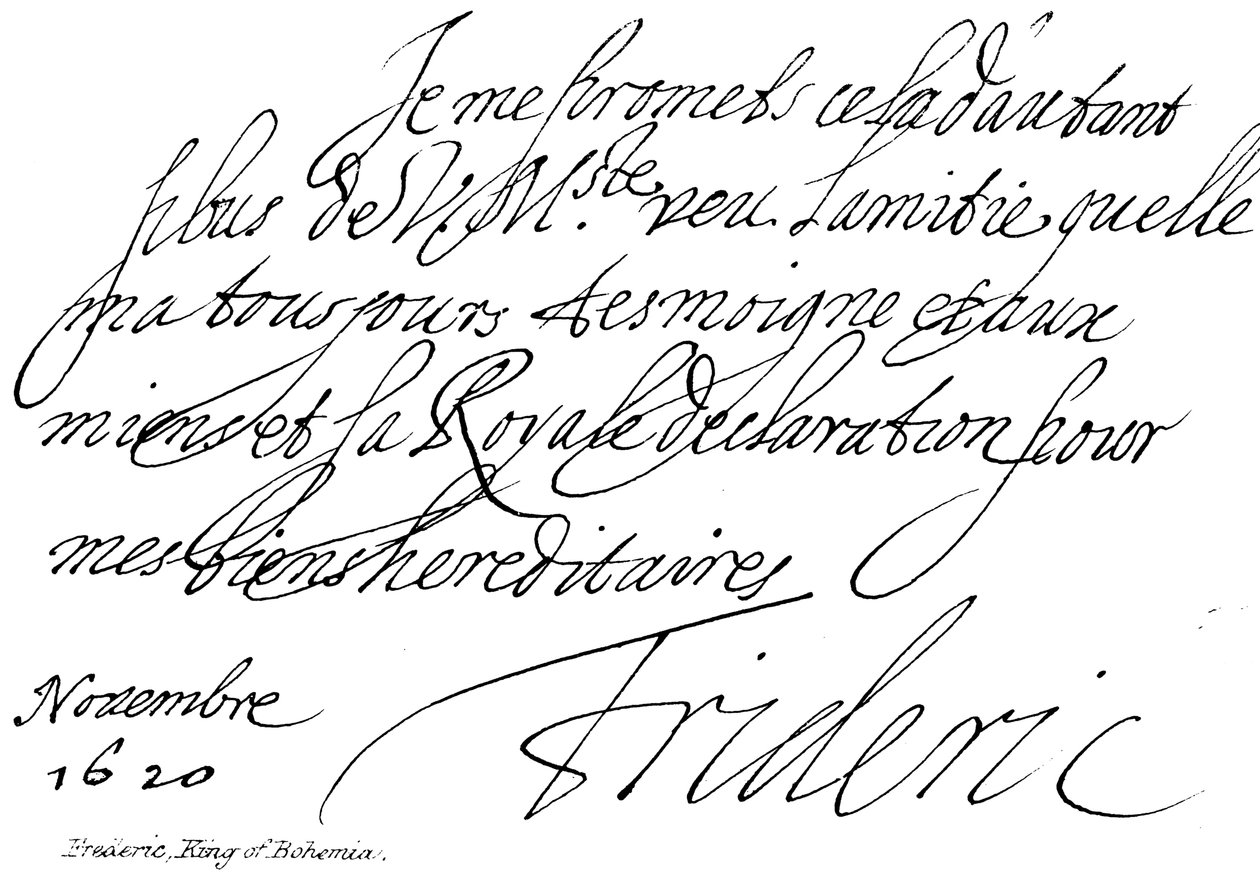 Je me promets cela d'autant
plus de V. M.ste veu lamitie quelle
ma tousjours tesmoigne et aux
miens et sa Royale declaration pour
mes biens hereditaires
Frideric
Novembre
1620
Frederic, King of Bohemia.